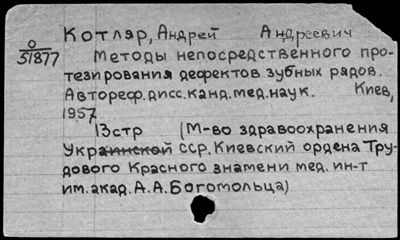 Котляр, Андрей Андреевич
0
51877
Методы непосредственного про-
тезирования дефектов зубных рядов.
Автореф.дисс.канд.мед.наук. Киев,
1957
13стр (М-во здравоохранения
Украинской ССР. Киевский ордена Тру-
дового Красного знамени мед. ин-т
им. акад. А.А.Богомольца)